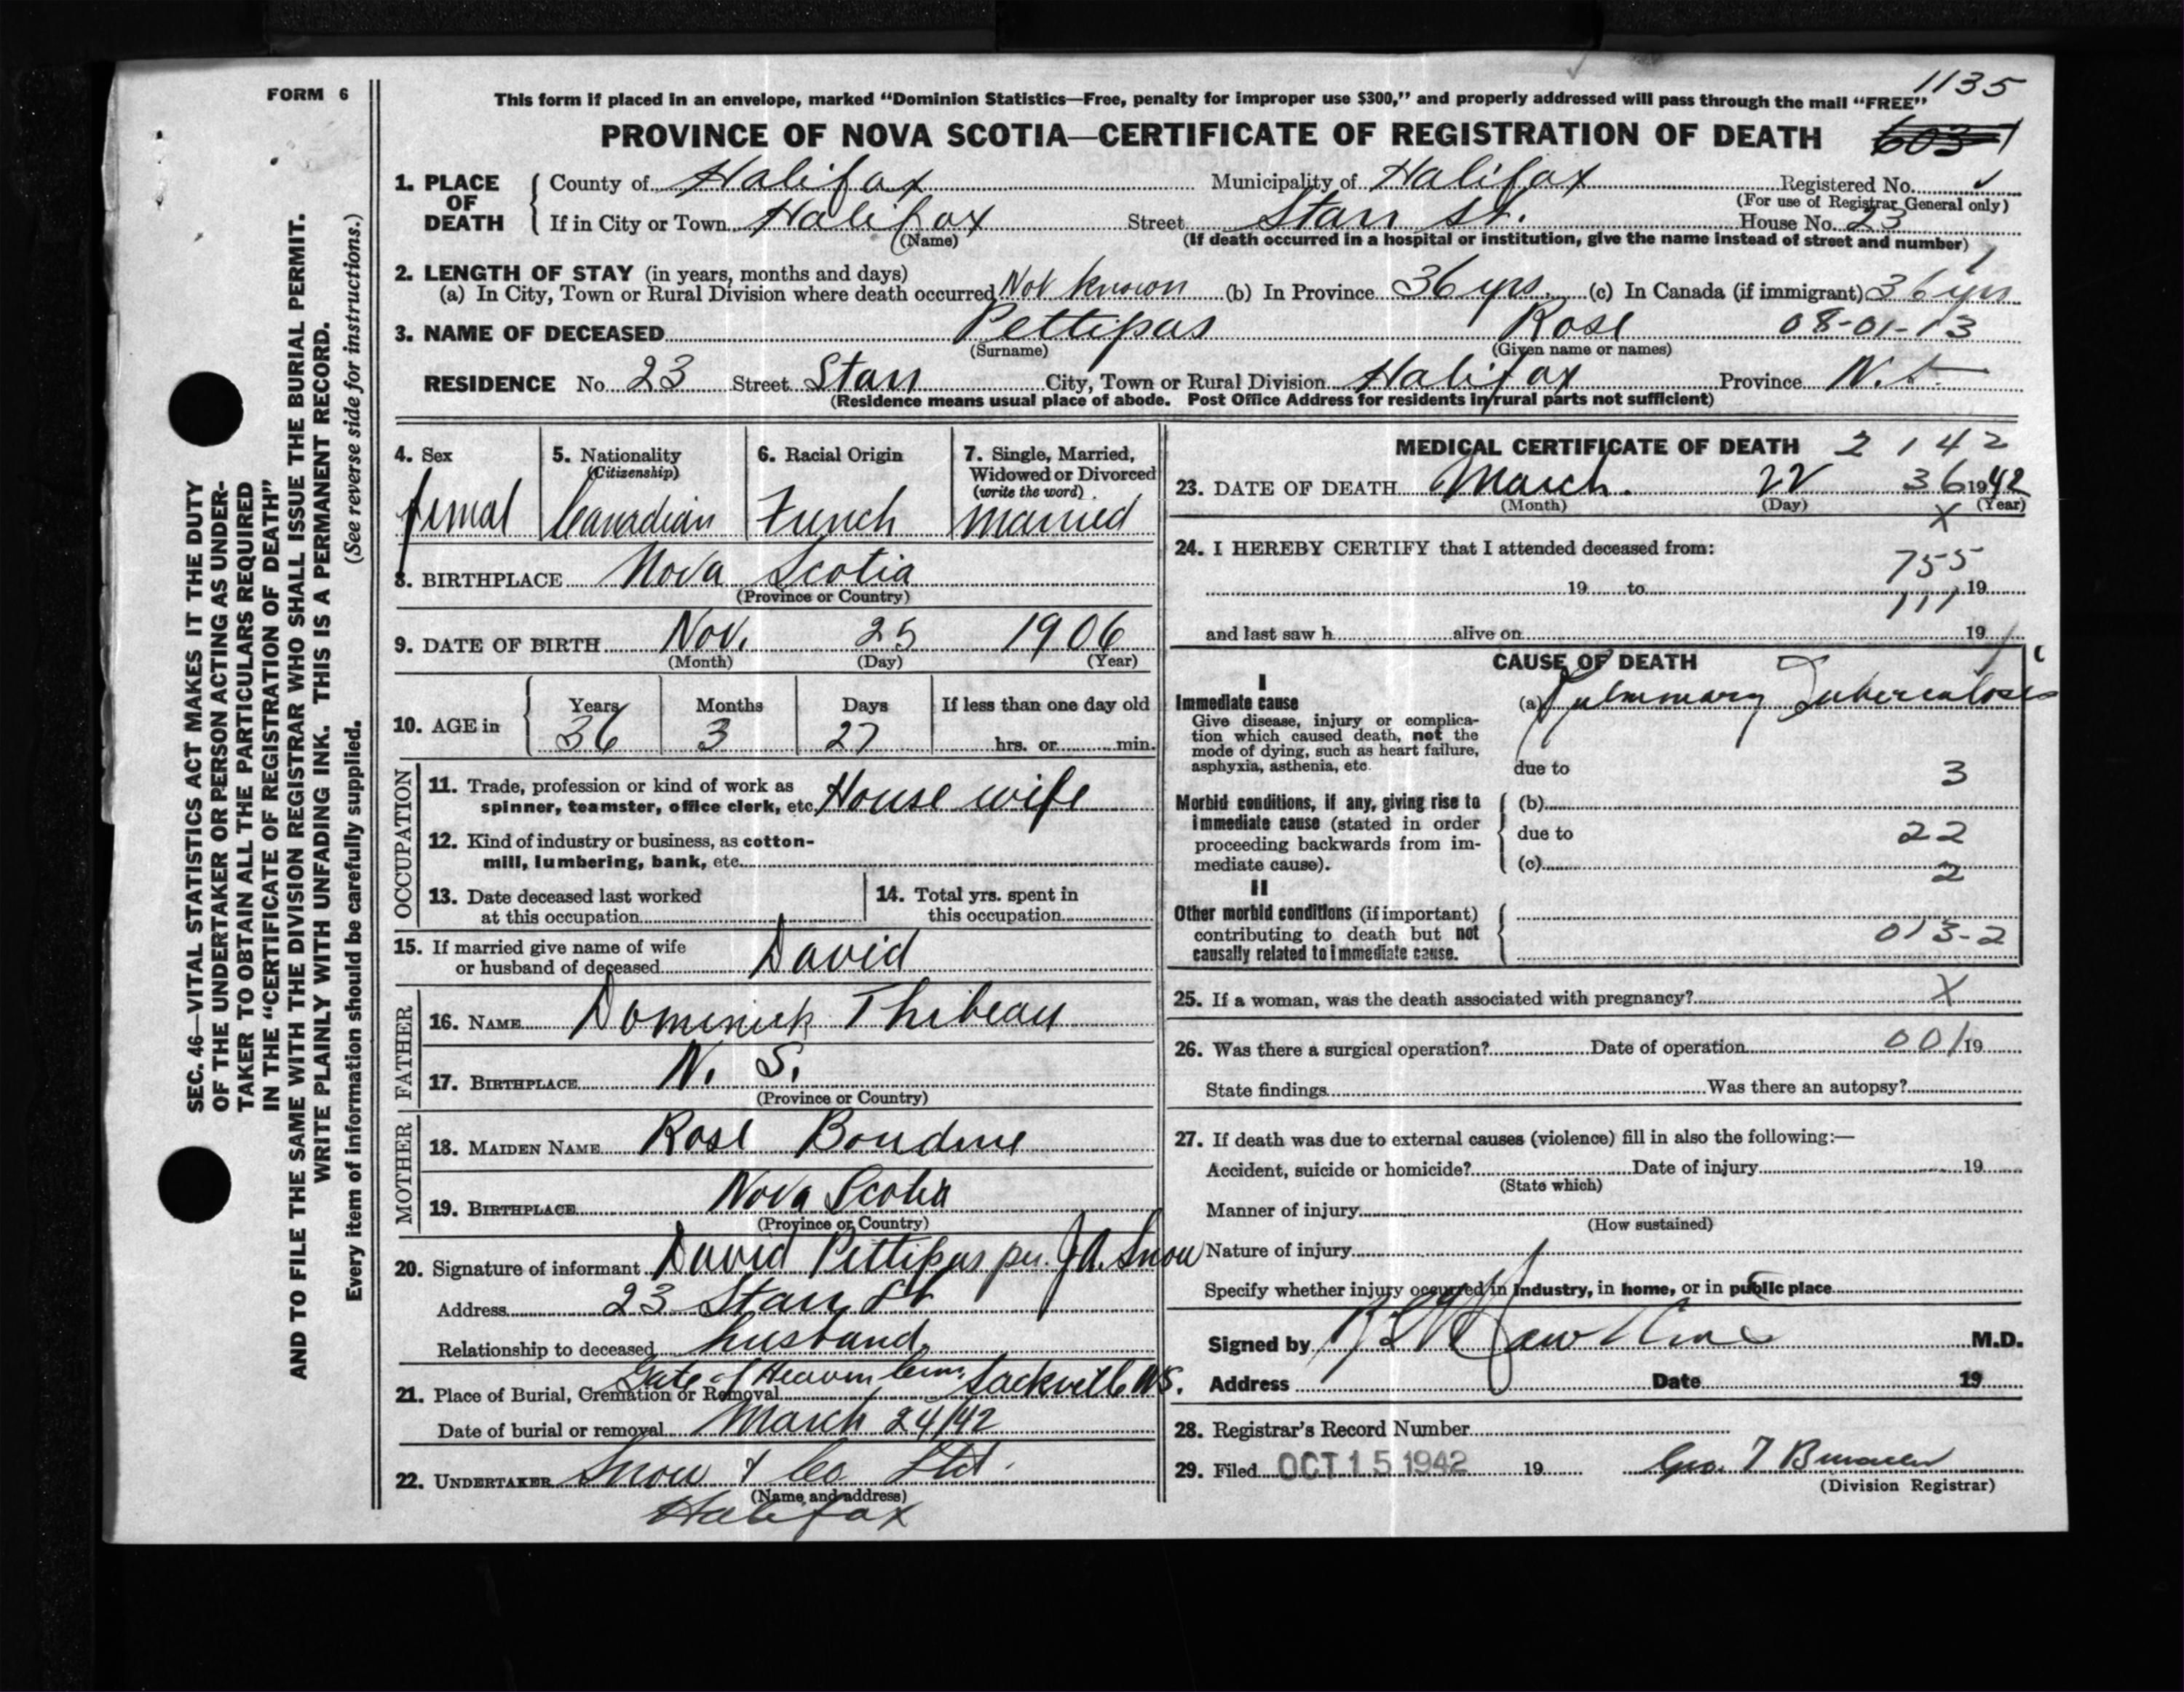 FORM 6
SEC. 46—VITAL STATISTICS ACT MAKES IT THE DUTY
OF THE UNDERTAKER OR PERSON ACTING AS UNDER-
TAKER TO OBTAIN ALL THE PARTICULARS REQUIRED
IN THE "CERTIFICATE OF REGISTRATION OF DEATH"
AND TO FILE THE SAME WITH THE DIVISION REGISTRAR WHO SHALL ISSUE THE BURIAL PERMIT.
WRITE PLAINLY WITH UNFADING INK. THIS IS A PERMANENT RECORD.
Every item of information should be carefully supplied. (See reverse side for instructions.)
1135
This form if placed in an envelope, marked "Dominion Statistics—Free, penalty for improper use $300," and properly addressed will pass through the mail "FREE"
PROVINCE OF NOVA SCOTIA—CERTIFICATE OF REGISTRATION OF DEATH 603
1. PLACE OF DEATH County of Halifax Municipality of Halifax Registered No.
(For use of Registrar General only)
If in City or Town Halifax Street Starr St. House No. 23
(Name) (If death occurred in a hospital or institution, give the name instead of street and number)
2. LENGTH OF STAY (in years, months and days)
(a) In City, Town or Rural Division where death occurred Not known (b) In Province 36 yrs. (c) In Canada (if immigrant) 36 yrs
3. NAME OF DECEASED Pettipas Rose 08-01-13
(Surname) (Given name or names)
RESIDENCE No. 23 Street Starr City, Town or Rural Division Halifax Province N.S.
(Residence means usual place of abode. Post Office Address for residents in rural parts not sufficient)
4. Sex 5. Nationality 6. Racial Origin 7. Single, Married,
(Citizenship) Widowed or Divorced
(write the word)
femal Canadian French married
8. BIRTHPLACE Nova Scotia
(Province or Country)
9. DATE OF BIRTH Nov. 25 1906
(Month) (Day) (Year)
10. AGE in Years Months Days If less than one day old
36 3 27 hrs. or min.
OCCUPATION
11. Trade, profession or kind of work as
spinner, teamster, office clerk, etc. House wife
12. Kind of industry or business, as cotton-
mill, lumbering, bank, etc.
13. Date deceased last worked
at this occupation
14. Total yrs. spent in
this occupation
15. If married give name of wife
or husband of deceased David
FATHER
16. NAME Dominick Thibeau
17. BIRTHPLACE N. S.
(Province or Country)
MOTHER
18. MAIDEN NAME Rose Boudrue
19. BIRTHPLACE Nova Scotia
(Province or Country)
20. Signature of informant David Pettipas per. J.A. Snow
Address 23 Starr St
Relationship to deceased husband.
21. Place of Burial, Cremation or Removal Gate of Heaven Cem. Sackville NS.
Date of burial or removal March 24/42
22. UNDERTAKER Snow & Co Ltd.
(Name and address)
Halifax
MEDICAL CERTIFICATE OF DEATH 2 142
23. DATE OF DEATH March. 22 36 1942
(Month) (Day) (Year)
X
24. I HEREBY CERTIFY that I attended deceased from:
755
19 to 19
111
and last saw h alive on 19
CAUSE OF DEATH
I
Immediate cause (a) Pulmonary Tuberculosis
Give disease, injury or complica-
tion which caused death, not the
mode of dying, such as heart failure,
asphyxia, asthenia, etc.
due to 3
Morbid conditions, if any, giving rise to
immediate cause (stated in order
proceeding backwards from im-
mediate cause).
(b)
due to 22
(c) 2
II
Other morbid conditions (if important)
contributing to death but not
causally related to immediate cause.
013-2
25. If a woman, was the death associated with pregnancy? X
26. Was there a surgical operation? Date of operation 001 19
State findings Was there an autopsy?
27. If death was due to external causes (violence) fill in also the following:—
Accident, suicide or homicide? Date of injury 19
(State which)
Manner of injury
(How sustained)
Nature of injury
Specify whether injury occurred in industry, in home, or in public place
Signed by M.D.
Address Date 19
28. Registrar's Record Number
29. Filed OCT 15 1942 19 Geo. T
(Division Registrar)